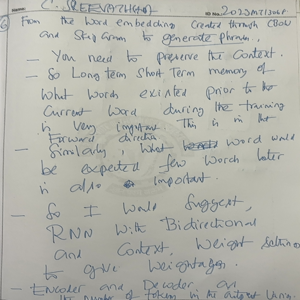 C. SREENATH
⑥ From the word embedding created through CBOW
and Skip Gram to generate phrases.
— You need to preserve the context.
— So Long term Short Term memory of
what words existed prior to the
current word during the training
is very important. This is in the
Forward direction
— Similarly, what word would
be expected few words later
is also important.
— So I would suggest,
RNN with Bidirectional
and Context, weight
to give weightage.
— Encoder and Decoder, as
the number of tokens in the output